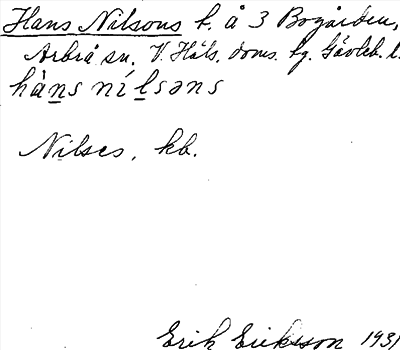 Hans Nilsons f. å 3 Bogården,
Arbrå sn. V. Häls. doms. hg. Gävleb. l.
hàns nílsəns
Nilses, kb.
Erik Eriksson 1931